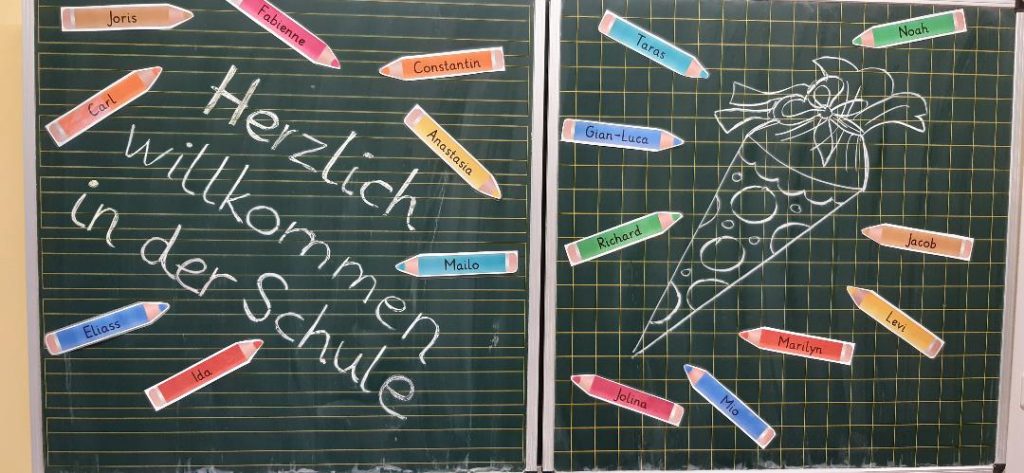 Joris
Fabienne
Constantin
Carl
Anastasia
Herzlich
willkommen
in der Schule
Mailo
Eliass
Ida
Taras
Noah
Gian-Luca
Richard
Jacob
Levi
Marilyn
Jolina
Mio